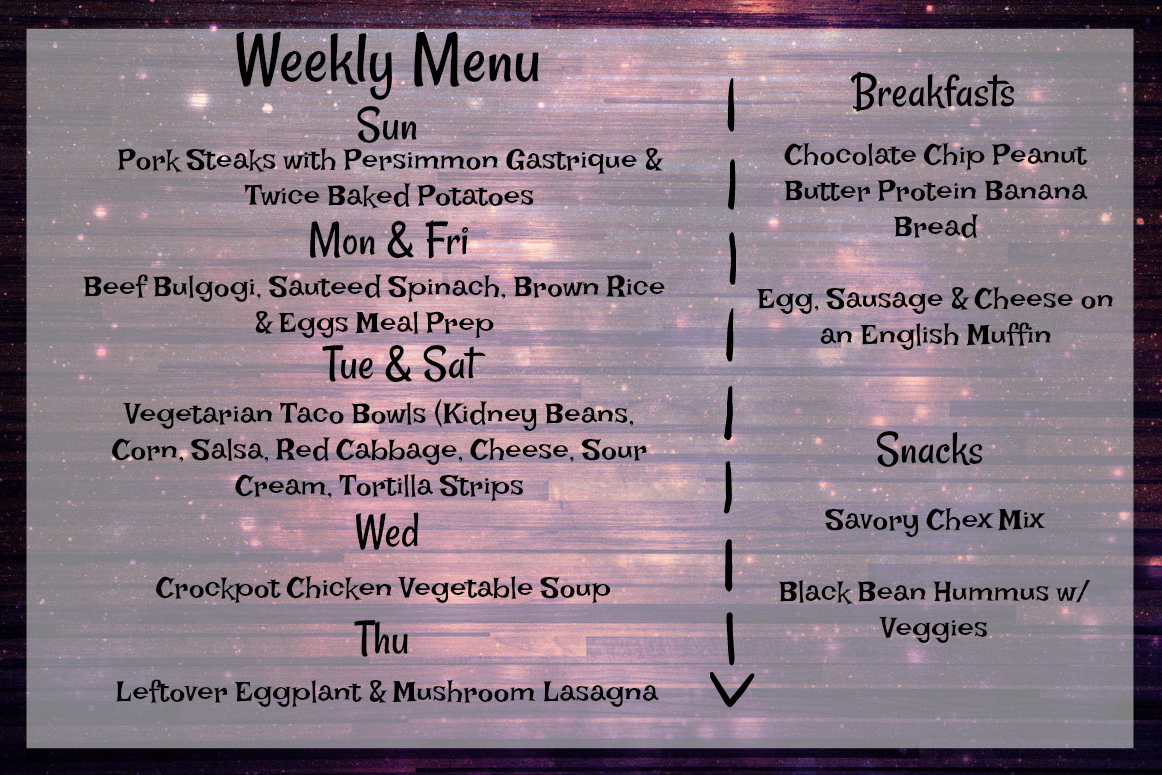 Weekly Menu
Sun
Pork Steaks with Persimmon Gastrique &
Twice Baked Potatoes
Mon & Fri
Beef Bulgogi, Sauteed Spinach, Brown Rice
& Eggs Meal Prep
Tue & Sat
Vegetarian Taco Bowls (Kidney Beans,
Corn, Salsa, Red Cabbage, Cheese, Sour
Cream, Tortilla Strips
Wed
Crockpot Chicken Vegetable Soup
Thu
Leftover Eggplant & Mushroom Lasagna
Breakfasts
Chocolate Chip Peanut
Butter Protein Banana
Bread
Egg, Sausage & Cheese on
an English Muffin
Snacks
Savory Chex Mix
Black Bean Hummus w/
Veggies